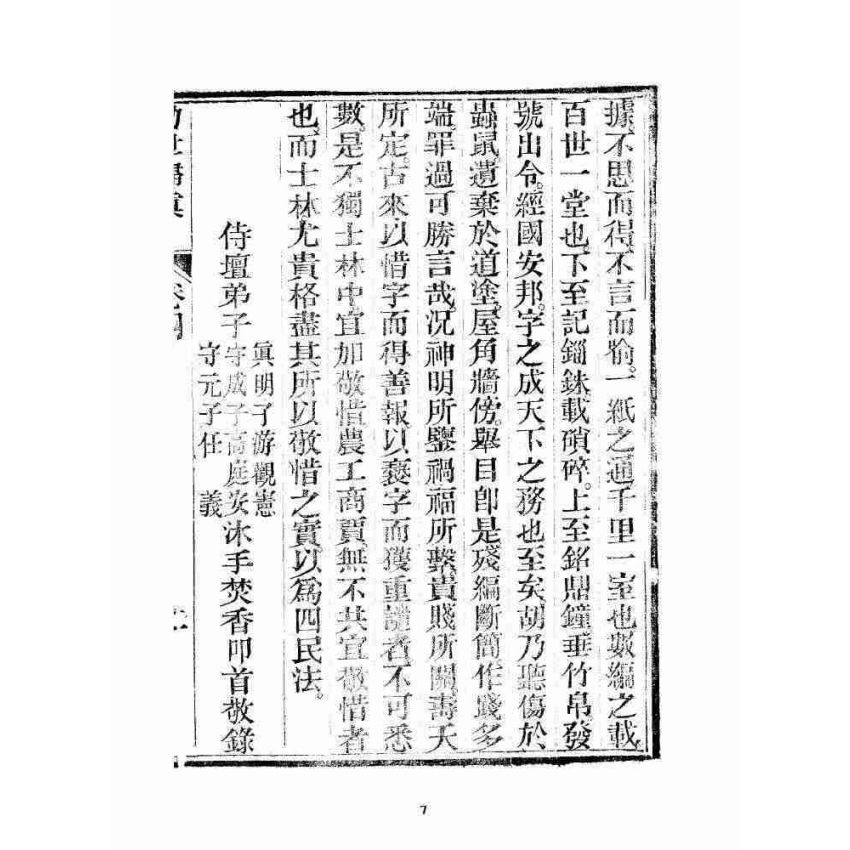 據不思而得不言而喻一紙之通千里一室也數編之載
百世一堂也下至記錙銖載瑣碎上至銘鼎鐘垂竹帛發
號出令經國安邦字之成天下之務也至矣胡乃聽傷於
蟲鼠遺棄於道塗屋角牆傍舉目卽是殘編斷簡作踐多
端罪過可勝言哉況神明所鑒禍福所繫貴賤所關壽夭
所定古來以惜字而得善報以褻字而獲重譴者不可悉
數是不獨士林中宜加敬惜農工商賈無不共宜敬惜者
也而士林尤貴格盡其所以敬惜之實以爲四民法
侍壇弟子
眞明子游觀憲
守成子高庭安
守元子任義
沐手焚香叩首敬錄
卷四
7